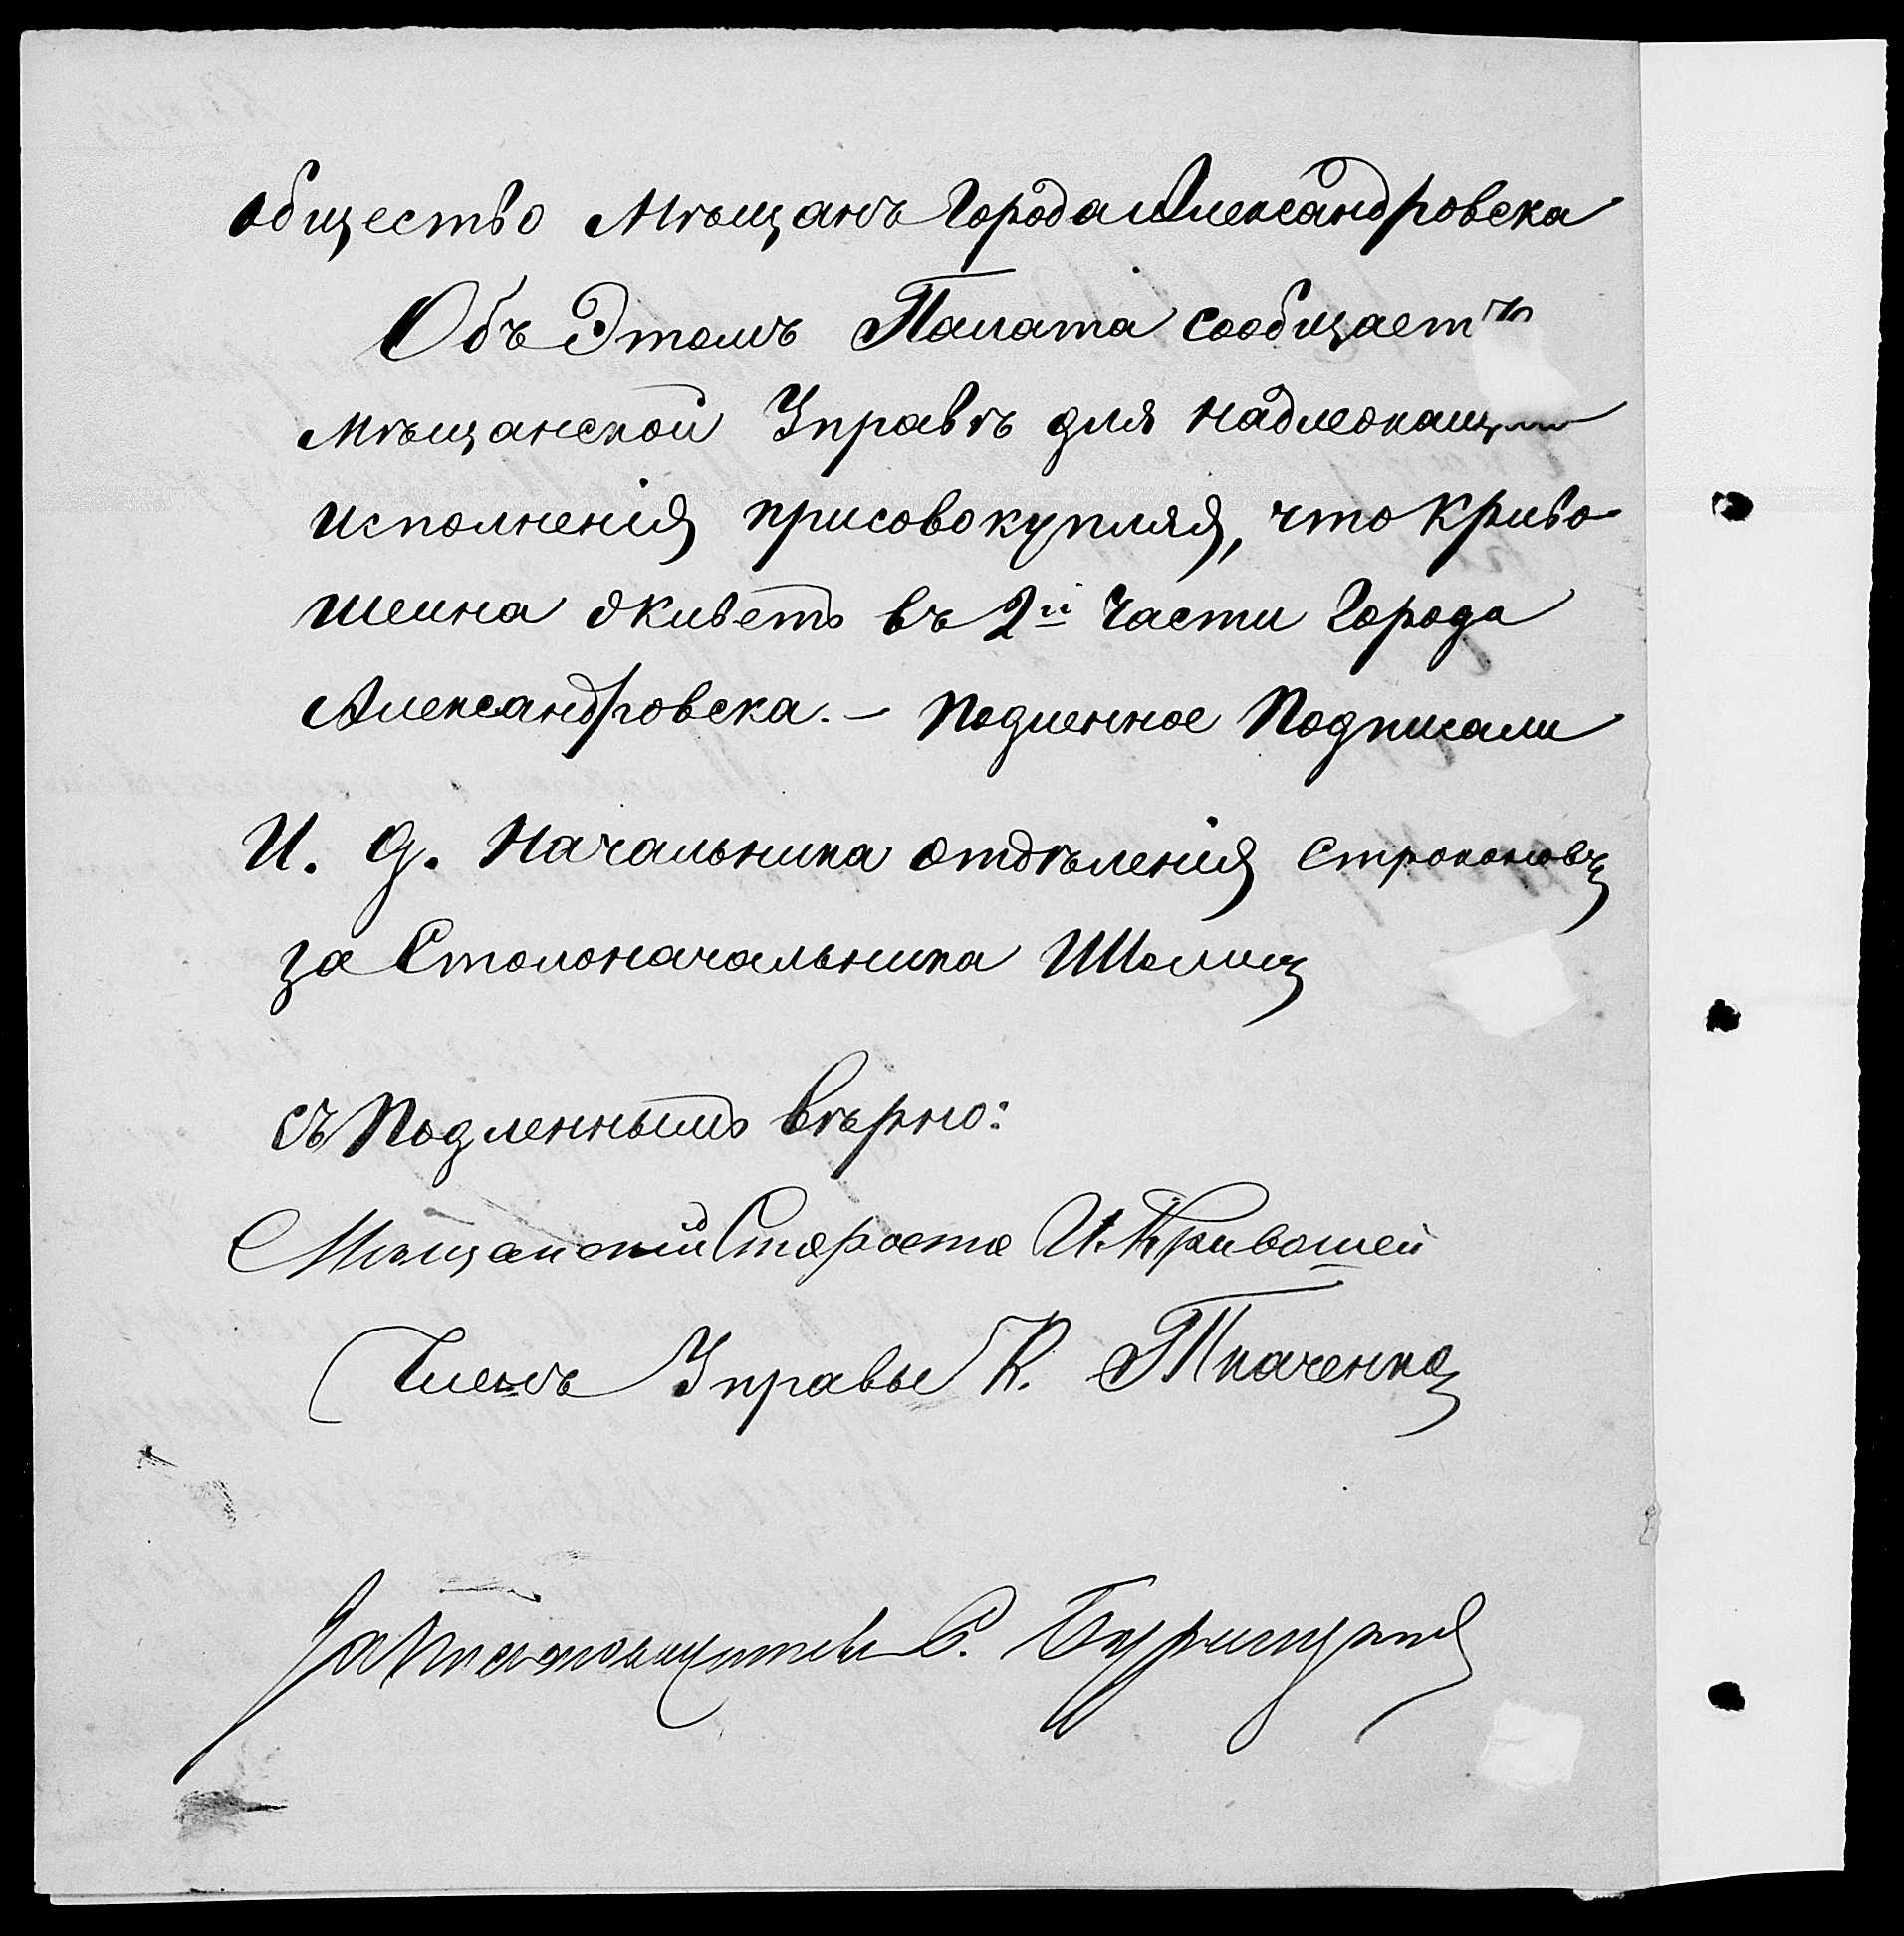 общество Мѣщанъ Города Александровска
Объ Этомъ Палата сообщаетъ
мѣщанской Управѣ для надлежащаго
исполненія присовокупляя, что Криво
шеина живетъ въ 2й Части Города
Александровска. – Подленное Подписали
И. д. Начальника отдѣленія Строконовъ
за Столоначальника
съ Подленнымъ вѣрно:
Мѣщанский Староста И. Кривошей
Членъ Управы К. Ткаченко
За С.